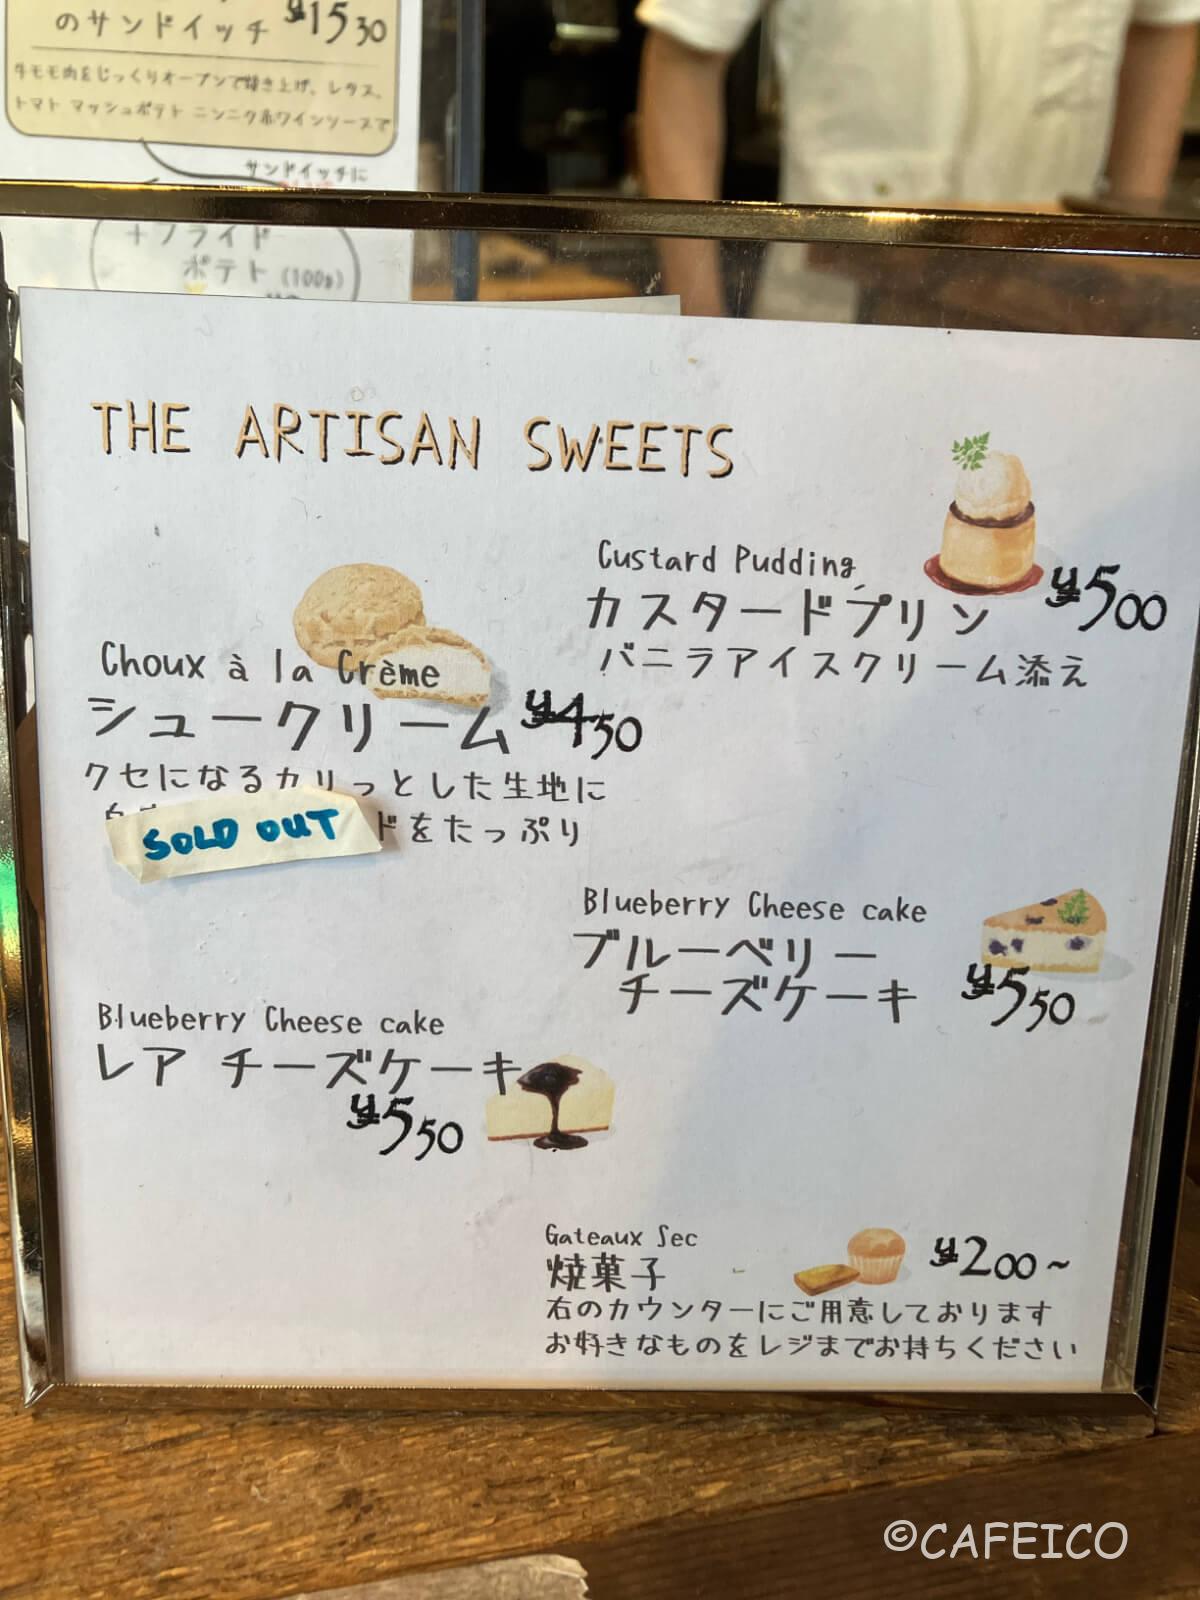 のサンドイッチ ¥1530
牛モモ肉をじっくりオーブンで焼き上げ、レタス、
トマト マッシュポテト ニンニク赤ワインソースで
サンドイッチに
+フライド
ポテト (100g)
THE ARTISAN SWEETS
Custard Pudding
カスタードプリン ¥500
バニラアイスクリーム添え
Choux à la Crème
シュークリーム ¥450
クセになるカリっとした生地に
SOLD OUT ドをたっぷり
Blueberry Cheese cake
ブルーベリー
チーズケーキ ¥550
Blueberry Cheese cake
レア チーズケーキ
¥550
Gateaux Sec
焼菓子 ¥200~
右のカウンターにご用意しております
お好きなものをレジまでお持ちください
©CAFEICO